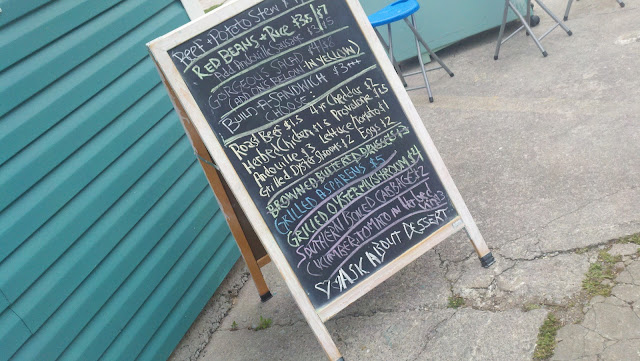 Beef + Potato Stew
RED BEANS + Rice $3.5/$7
Add Andouille Sausage $3/1.5
GORGEOUS SALAD
(ADD ONS BELOW IN YELLOW)
BUILD-A-SANDWICH $3+++
CHOOSE:
Roast Beef $1.5 4 yr Cheddar $2
Herbed Chicken $1.5 Provalone $1.5
Andouille $3 Lettuce/tomato $1
Grilled Oyster Shrooms $2 Eggs $2
BROWNED BUTTERED BRUSSELS
GRILLED ASPARENS $5
GRILLED OYSTER MUSHROOM $4
SOUTHERN BOILED CABBAGE $2
CUCUMBER TOMATO in Herbed
♡ ASK ABOUT DESSERT